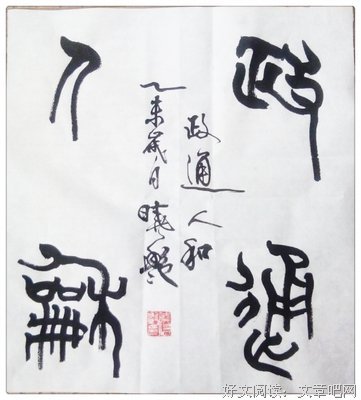 政通
人龢
政通人和
乙未歲月曉
好文阅读：文章吧网